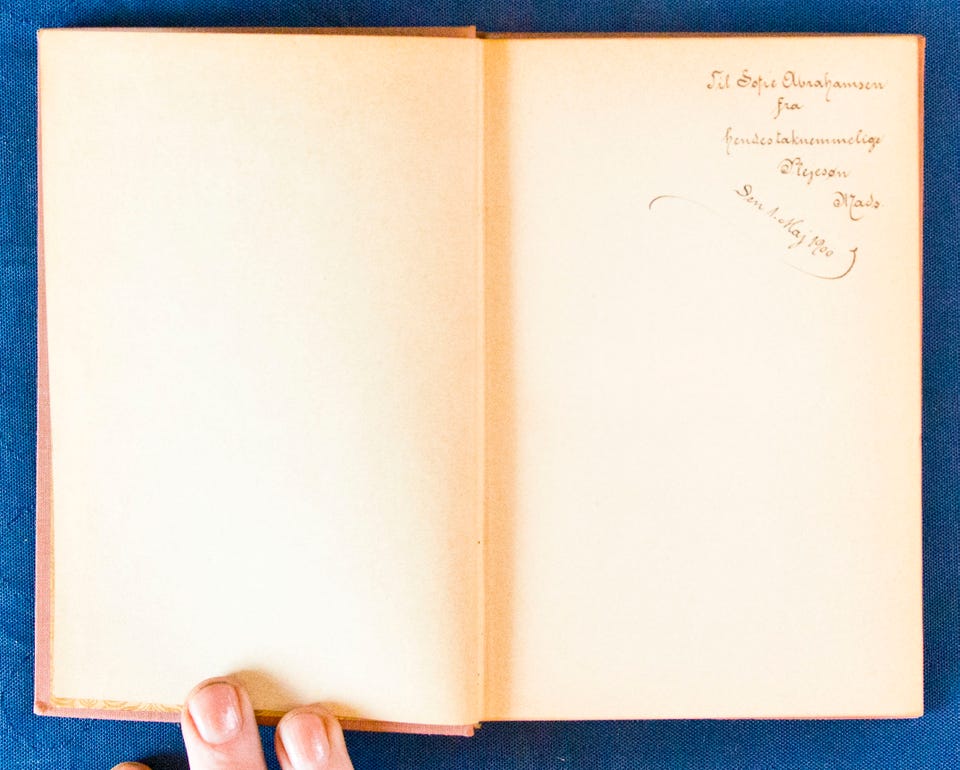 Til Sofie Abrahamsen
fra
hendes taknemmelige
Plejesøn
Mads.
Den 1. Maj 1900